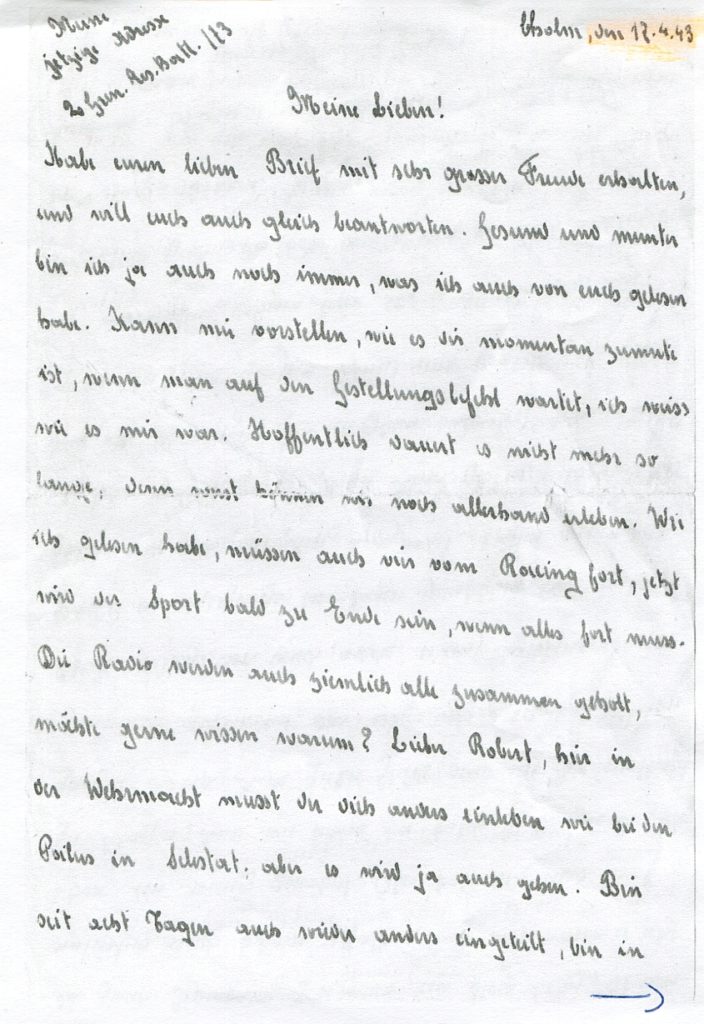 Meine
jetzige Adresse
2. Gren. Res. Batl. /73
Cholm, den 17.4.43
Meine Lieben!
Habe euren lieben Brief mit sehr grosser Freude erhalten,
und will euch auch gleich beantworten. Gesund und munter
bin ich ja auch noch immer, was ich auch von euch gelesen
habe. Kann mir vorstellen, wie es dir momentan zumute
ist, wenn man auf den Gestellungsbefehl wartet, ich weiss
wie es mir war. Hoffentlich dauert es nicht mehr so
lange, denn sonst können wir noch allerhand erleben. Wie
ich gelesen habe, müssen auch vier vom Racing fort, jetzt
wird der Sport bald zu Ende sein, wenn alles fort muss.
Die Radio werden auch ziemlich alle zusammen geholt,
möchte gerne wissen warum? Lieber Robert, hier in
der Wehrmacht musst du dich anders einleben wie bei den
Poilus in Selestat, aber es wird ja auch gehen. Bin
seit acht Tagen auch wieder anders eingeteilt, bin in